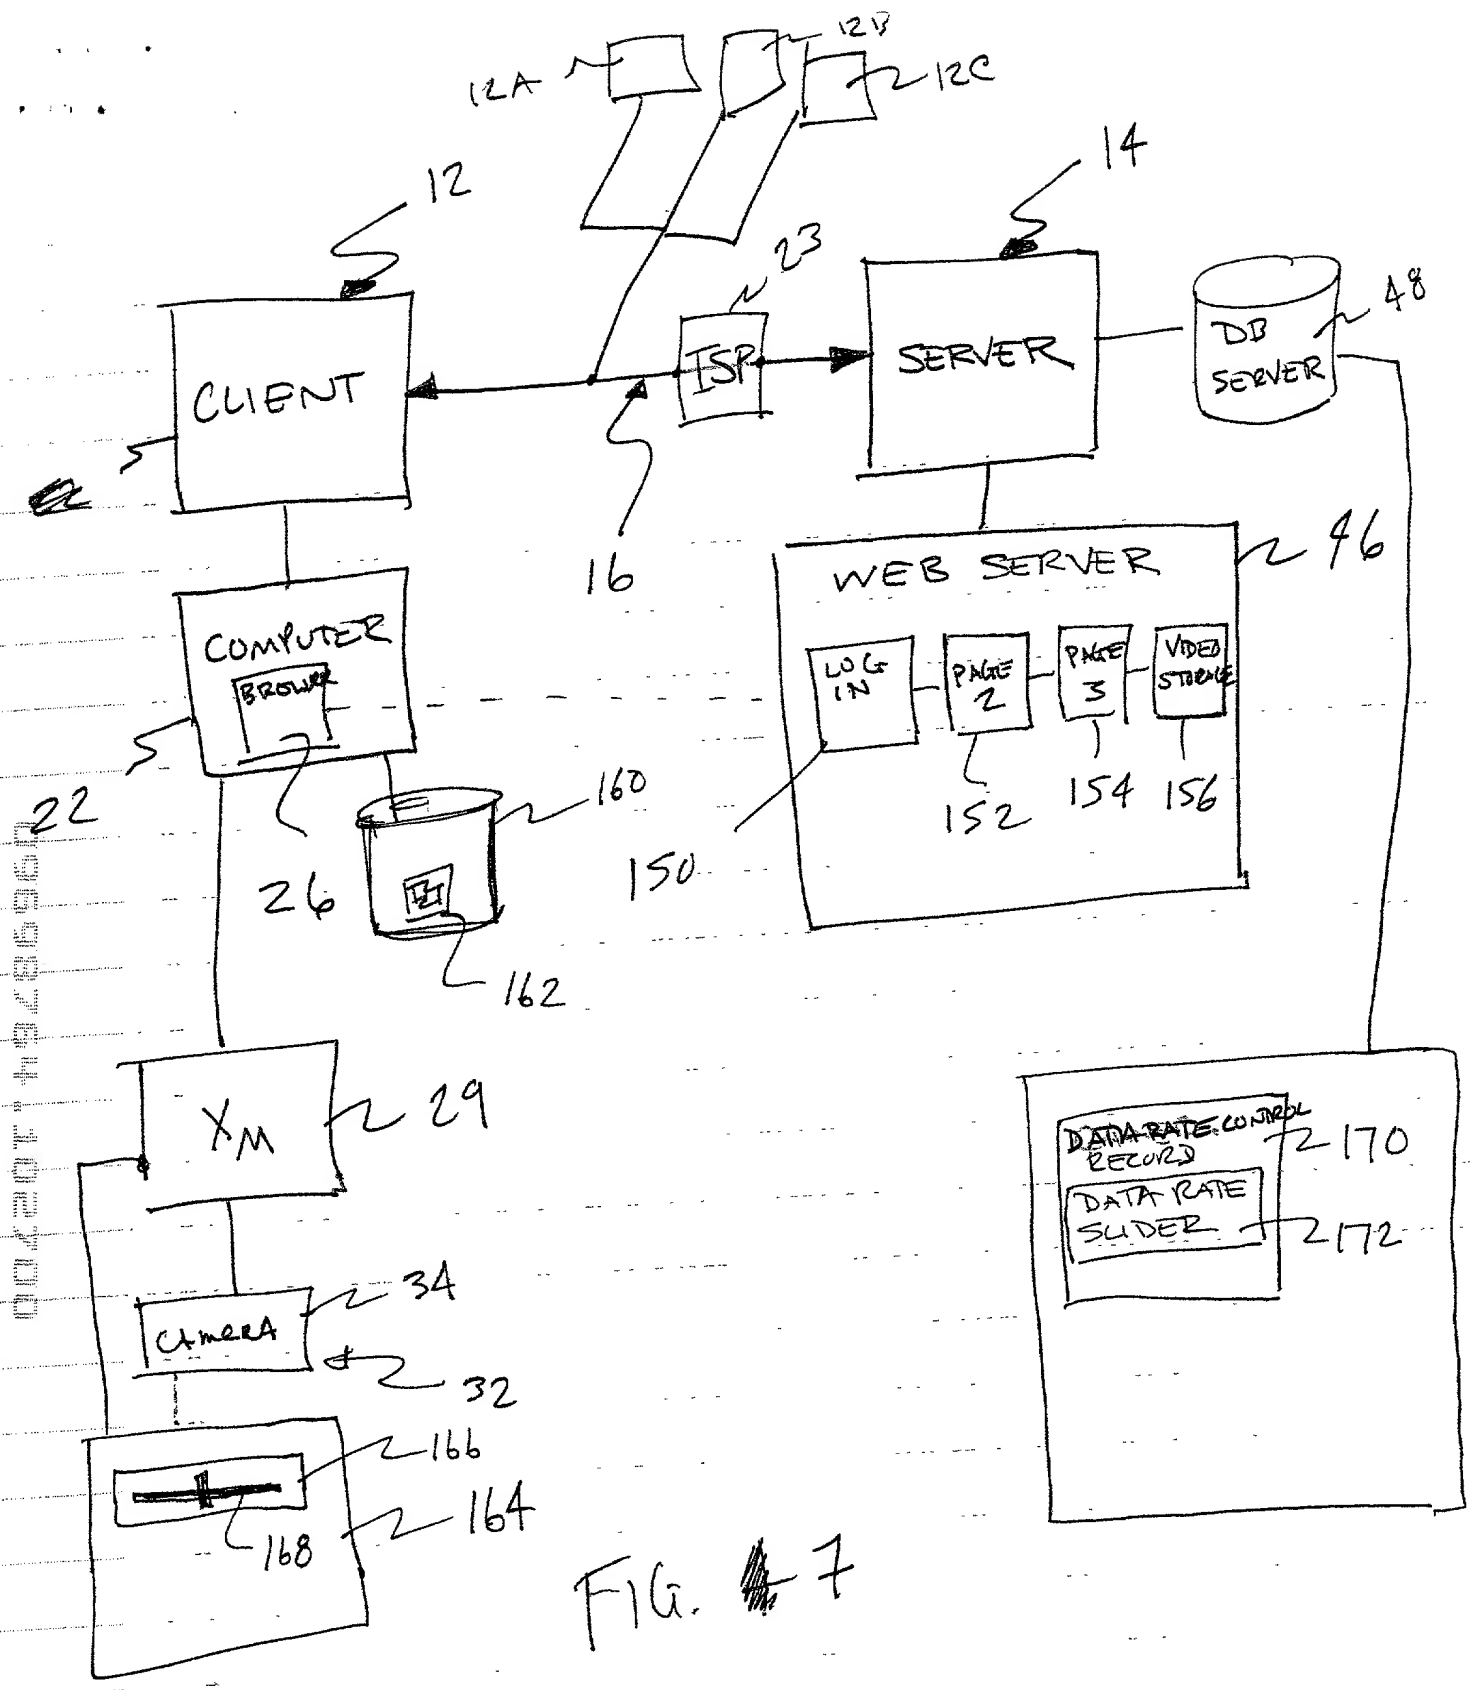 12A
12B
12C
12
14
23
48
CLIENT
ISP
SERVER
DB
SERVER
16
46
WEB SERVER
COMPUTER
BROWSER
LOG
IN
PAGE
2
PAGE
3
VIDEO
STORAGE
22
26
160
150
152
154
156
162
XM
29
DATA RATE CONTROL
RECORD
170
DATA RATE
SLIDER
172
34
CAMERA
32
166
164
168
FIG. 7